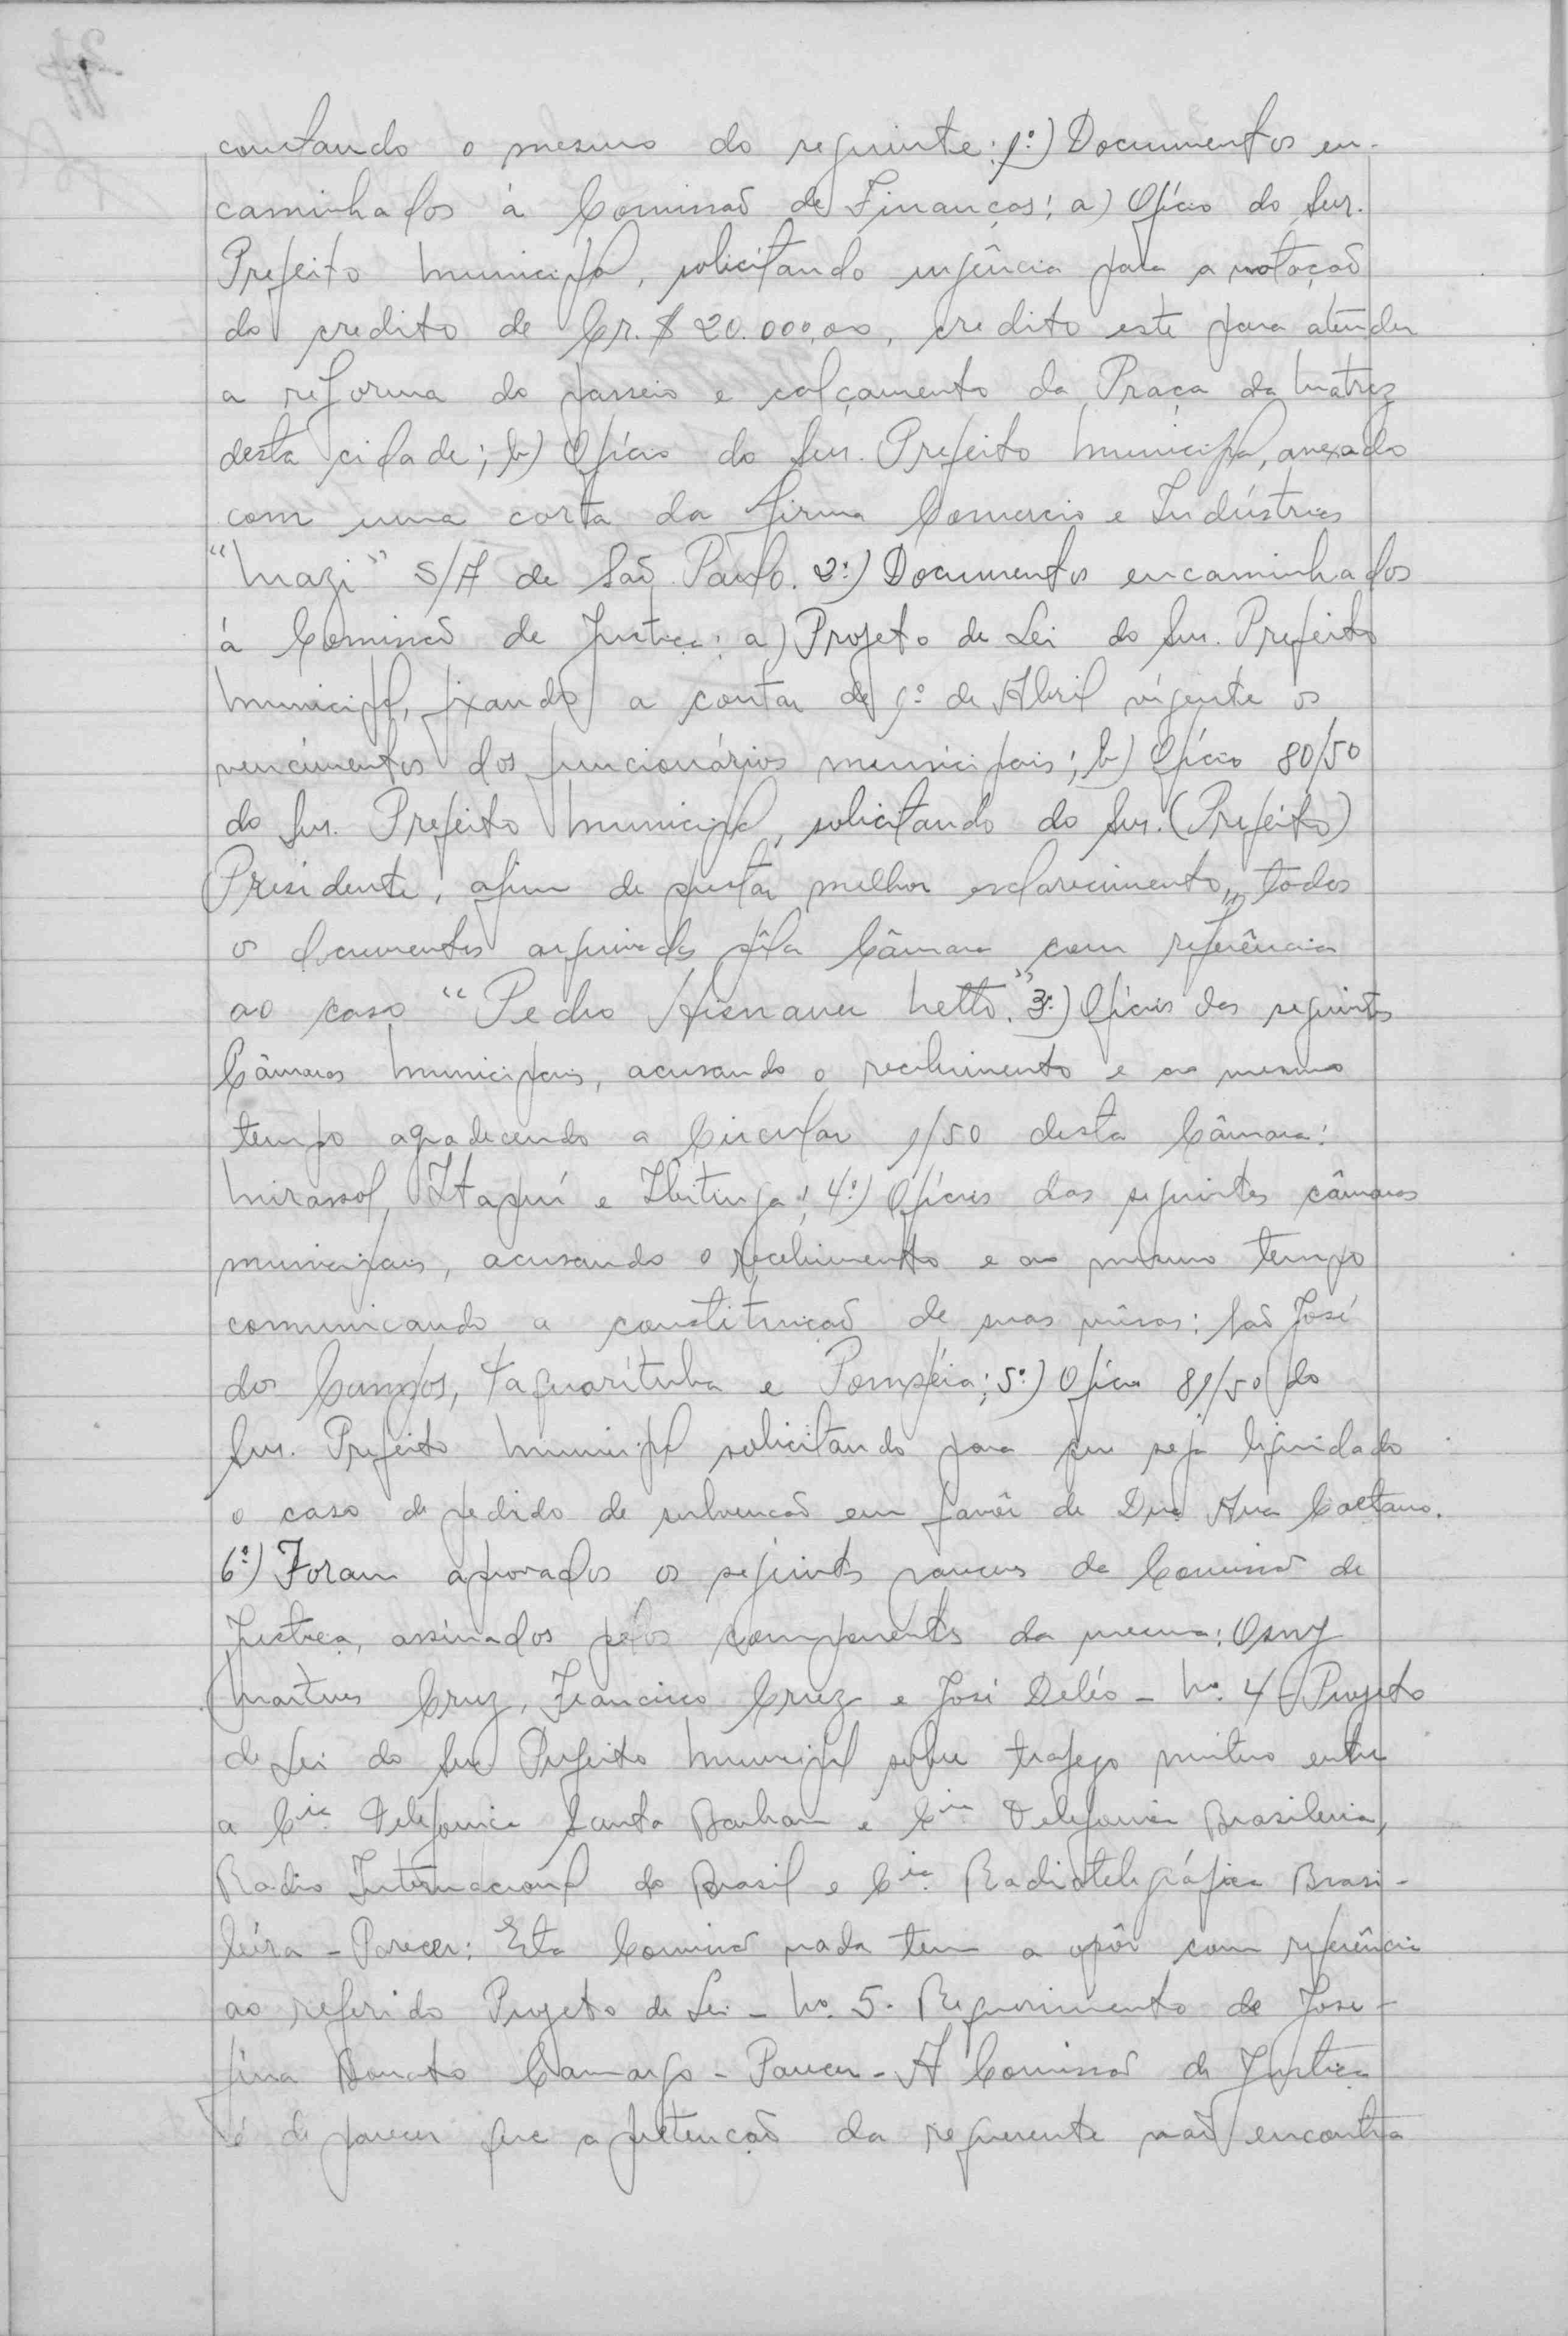 constando o mesmo do seguinte: 1º) Documentos en-
caminhados á Comissaõ de Finanças: a) Ofício do Snr.
Prefeito Municipal, solicitando urgência para a votaçaõ
do credito de Cr.$ 20.000,00, credito este para atender
a reforma do passeio e calçamento da Praça da Matriz
desta cidade; b) Ofício do Snr. Prefeito Municipal, anexado
com uma carta da firma Comercio e Indústrias
"Mazi" S/A de Saõ Paulo. 2º) Documentos encaminhados
á Comissaõ de Justiça: a) Projeto de Lei do Snr. Prefeito
Municipal, fixando a contar de 1º de Abril vigente os
vencimentos dos funcionários municipais; b) Ofício 80/50
do Snr. Prefeito Municipal, solicitando do Snr. (Prefeito)
Presidente, afim de prestar melhor esclarecimento, todos
os documentos arquivados pêla Câmara com referência
ao caso "Pedro Netto." 3º) Ofícios das seguintes
Câmaras Municipais, acusando o recebimento e ao mesmo
tempo agradecendo a Circular 1/50 desta Câmara:
Mirassol, Itapuí e Ibitinga; 4º) Ofícios das seguintes câmaras
municipais, acusando o recebimento e ao mesmo tempo
comunicando a constituiçaõ de suas mêsas: Saõ José
dos Campos, Taquarituba e Pompéia; 5º) Ofício 81/50 do
Snr. Prefeito Municipal solicitando para que seja liquidado
o caso de pedido de subvençaõ em favôr de Dna Ana Caetano.
6º) Foram aprovados os seguintes pareceres da Comissaõ de
Justiça, assinados pelos componentes da mesma: Osny
Martins Cruz, Francisco Cruz e José Deléo - Nº. 4 - Projeto
de Lei do Snr Prefeito Municipal sobre trafego mutuo entre
a Cia. Telefonica Santa Barbara e Cia Telefonica Brasileira,
Radio Internacional do Brasil e Cia. Radiotelegráfica Brasi-
leira - Parecer: Esta Comissaõ nada tem a opôr com referência
ao referido Projeto de Lei - Nº. 5 - Requerimento de Jose-
fina Donato Camargo - Parecer - A Comissaõ de Justiça
é de parecer que a pretençaõ da requerente naõ encontra